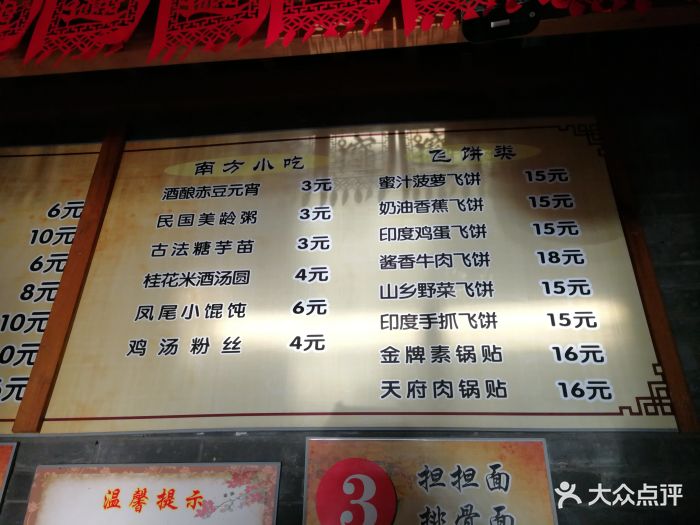 6元
10元
6元
8元
10元
南方小吃
酒酿赤豆元宵 3元
民国美龄粥 3元
古法糖芋苗 3元
桂花米酒汤圆 4元
凤尾小馄饨 6元
鸡汤粉丝 4元
飞饼类
蜜汁菠萝飞饼 15元
奶油香蕉飞饼 15元
印度鸡蛋飞饼 15元
酱香牛肉飞饼 18元
山乡野菜飞饼 15元
印度手抓飞饼 15元
金牌素锅贴 16元
天府肉锅贴 16元
温馨提示
3
担担面
排骨面
大众点评